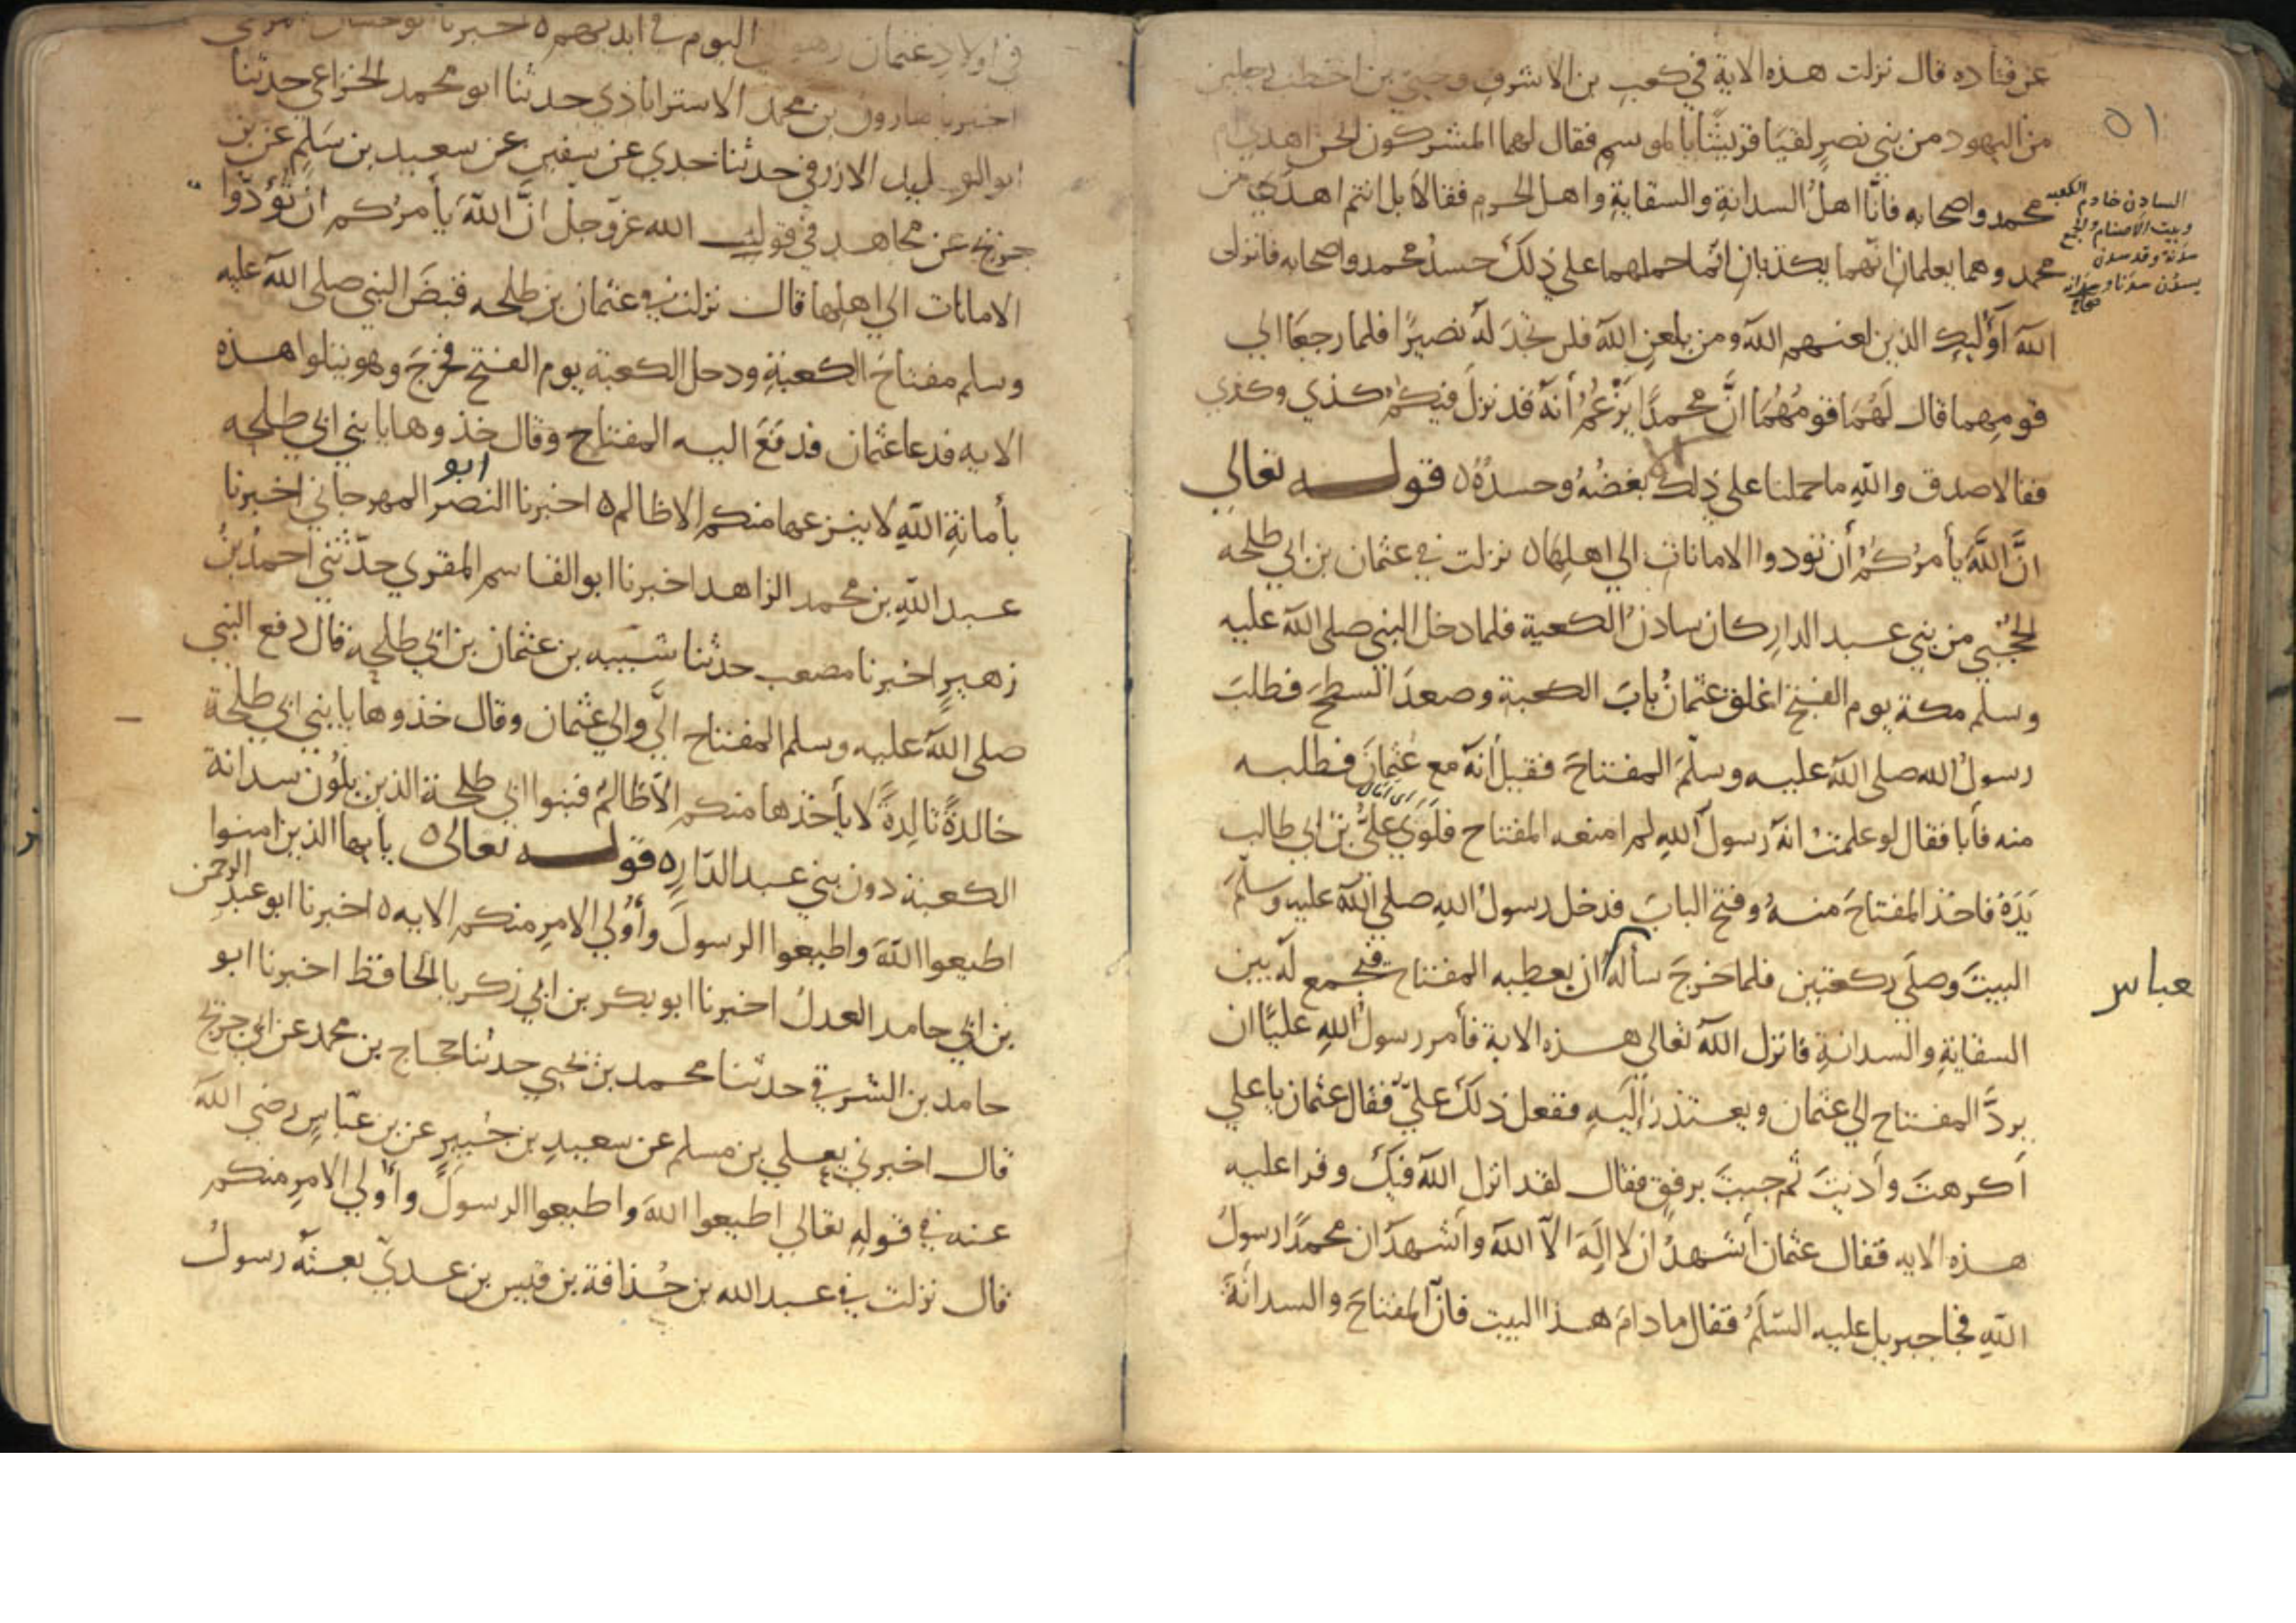 عن قتاده قال نزلت هذه الاية في كعب بن الاشرف وحيي بن اخطب رجلين
من اليهود من بني نضير لقيا قريشا بالموسم فقال لهما المشركون نحن اهدي ام
محمد واصحابه فانا اهل السدانة والسقاية واهل الحرم فقالا بل انتم اهدي من
محمد وهما يعلمان انهما يكذبان انما حملهما على ذلك حسد محمد واصحابه فانزل
الله اوليك الذين لعنهم الله ومن يلعن الله فلن تجد له نصيرا فلما رجعا الي
قومهما قال لهما قومهما ان محمدا يزعم أنه قد نزل فيكم كذي وكذي
فقالا صدق والله ما حملنا على ذلك بغضه وحسده ٥ قوله تعالي
ان الله يأمركم أن تودوا الامانات الي اهلها ٥ نزلت في عثمان بن ابي طلحه
الحجبي من بني عبد الدار كان سادن الكعبة فلما دخل النبي صلى الله عليه
وسلم مكة يوم الفتح اغلق عثمان باب الكعبة وصعد السطح فطلب
رسول الله صلى الله عليه وسلم المفتاح فقيل أنه مع عثمان فطلبه
منه فأبا فقال لو علمت انه رسول الله لم امنعه المفتاح فلوي علي بن ابي طالب
يده فاخذ المفتاح منه وفتح الباب فدخل رسول الله صلى الله عليه وسلم
البيت وصلى ركعتين فلما خرج سأله ان يعطيه المفتاح فيجمع له بين
السقاية والسدانة فانزل الله تعالي هذه الاية فأمر رسول الله عليا ان
يرد المفتاح الي عثمان ويعتذر إليه ففعل ذلك علي فقال عثمان يا علي
أكرهت وأذيت ثم جيت برفق فقال لقد انزل الله فيك وقرا عليه
هذه الايه فقال عثمان أشهد ان لا إله الا الله وأشهد ان محمدا رسول
الله فجا جبريل عليه السلم فقال ما دام هذا البيت فان المفتاح والسدانة
٥١
السادن خادم الكعبه
وبيت الاصنام والجمع
سدنة وقد سدن
يسدن سدنا وسدانة
صحاح
اى امال
عباس
في اولاد عثمان وهو اليوم في ايديهم ٥ اخبرنا ابو حسان المزكي
اخبرنا هارون بن محمد الاستراباذي حدثنا ابو محمد الخزاعي حدثنا
ابو الوليد الازرقي حدثنا جدي عن سفين عن سعيد بن سلم عن بن
جريج عن مجاهد في قول الله عز وجل ان الله يأمركم ان تؤدوا
الامانات الي اهلها قال نزلت في عثمان بن طلحه قبض النبي صلى الله عليه
وسلم مفتاح الكعبة ودخل الكعبة يوم الفتح فخرج وهو يتلوا هذه
الايه فدعا عثمان فدفع اليه المفتاح وقال خذوها يا بني ابي طلحه
بأمانة الله لا ينزعها منكم الا ظالم ٥ اخبرنا ابو النصر المهرجاني اخبرنا
عبد الله بن محمد الزاهد اخبرنا ابو القاسم المقري حدثني احمد بن
زهير اخبرنا مصعب حدثنا شيبه بن عثمان بن ابي طلحة قال دفع النبي
صلى الله عليه وسلم المفتاح الي والي عثمان وقال خذوها يا بني ابي طلحة
خالدة تالدة لا يأخذها منكم الا ظالم فبنوا ابي طلحة الذين يلون سدانة
الكعبة دون بني عبد الدار ٥ قوله تعالى ٥ يأيها الذين امنوا
اطيعوا الله واطيعوا الرسول وأولي الامر منكم الايه ٥ اخبرنا ابو عبد الرحمن
بن ابي حامد العدل اخبرنا ابو بكر بن ابي زكريا الحافظ اخبرنا ابو
حامد بن الشرقي حدثنا محمد بن يحيي حدثنا حجاج بن محمد عن ابي جريج
قال اخبرني يعلي بن مسلم عن سعيد بن جبير عن بن عباس رضي الله
عنه في قوله تعالي اطيعوا الله واطيعوا الرسول وأولي الامر منكم
قال نزلت في عبد الله بن حذافة بن قيس بن عدي بعثه رسول